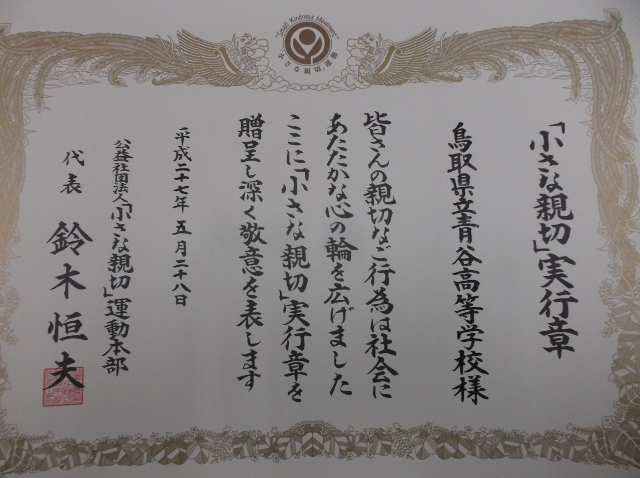 "Small Kindness Movement"
小さな親切運動
「小さな親切」実行章
鳥取県立青谷高等学校様
皆さんの親切なご行為は社会に
あたたかな心の輪を広げました
ここに「小さな親切」実行章を
贈呈し深く敬意を表します
平成二十七年五月二十八日
公益社団法人「小さな親切」運動本部
代表 鈴木恒夫